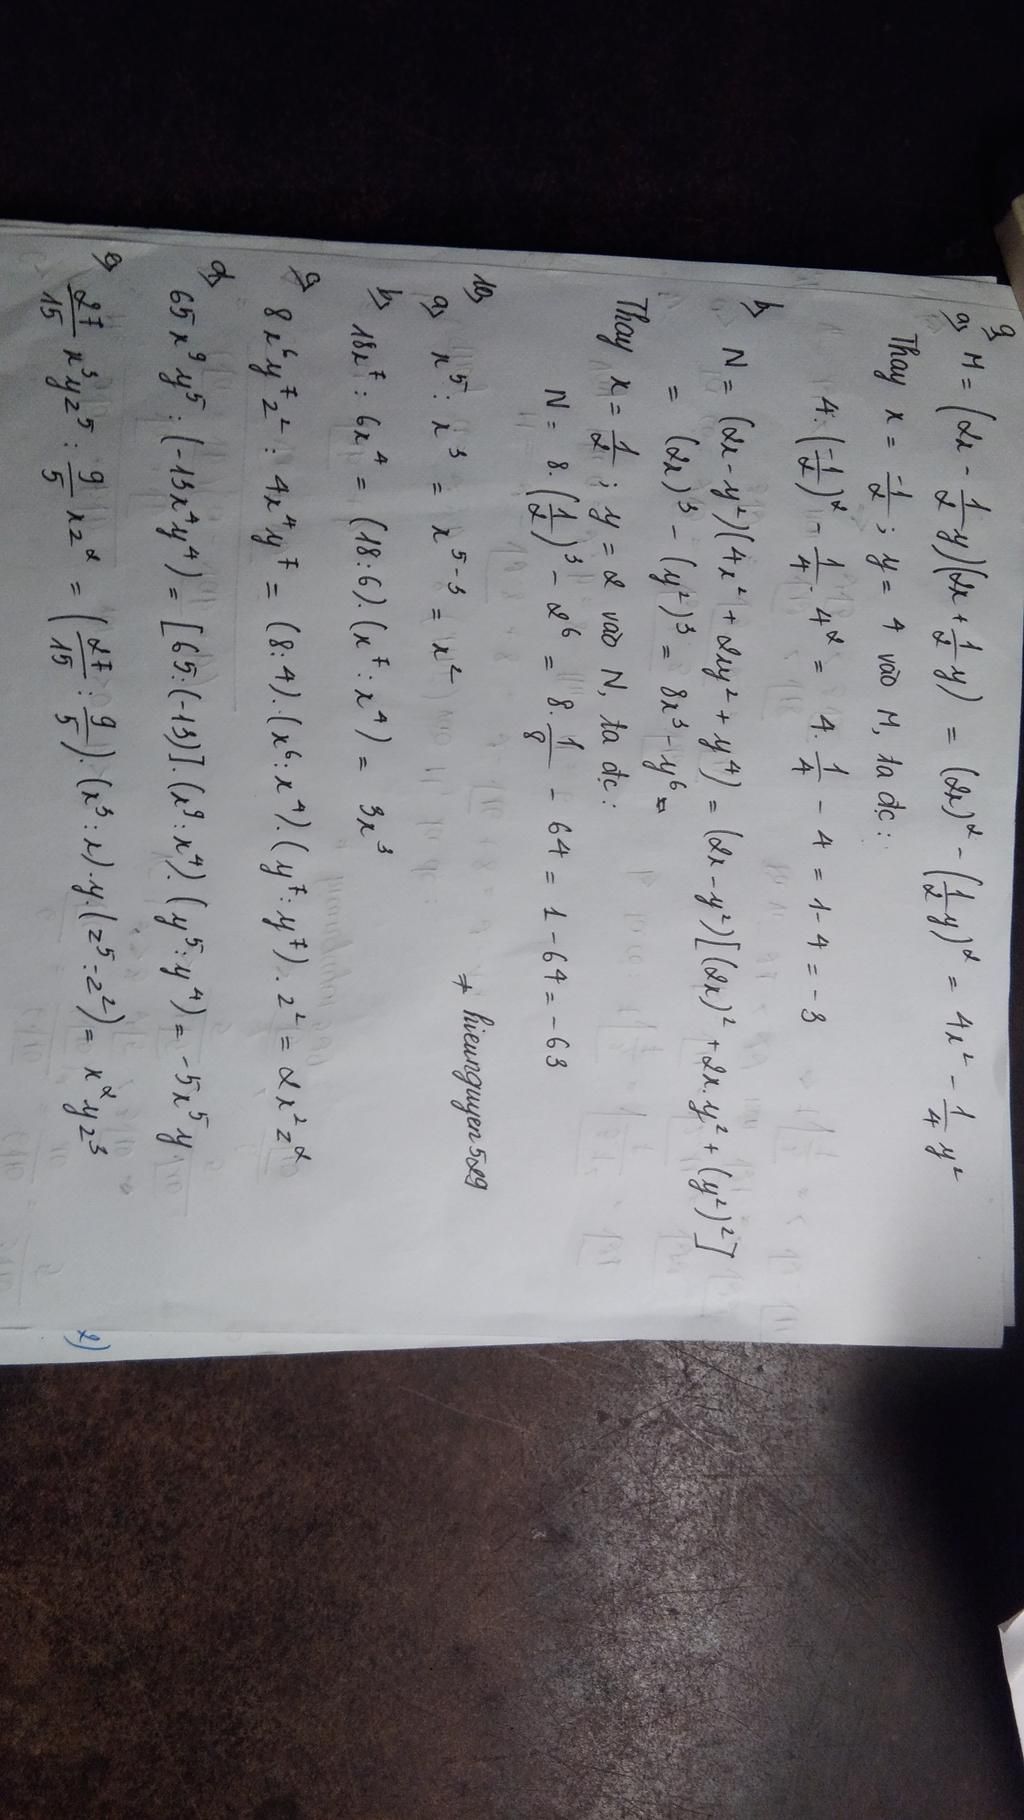 9,
a, M = (2x - 1/2 y)(2x + 1/2 y) = (2x)² - (1/2 y)² = 4x² - 1/4 y²
Thay x = -1/2 ; y = 4 vào M, ta đc :
4. (-1/2)² - 1/4 . 4² = 4. 1/4 - 4 = 1 - 4 = -3
b, N = (2x - y²)(4x² + 2xy² + y⁴) = (2x - y²)[(2x)² + 2x.y² + (y²)²]
= (2x)³ - (y²)³ = 8x³ - y⁶
Thay x = 1/2 ; y = 2 vào N, ta đc :
N = 8. (1/2)³ - 2⁶ = 8. 1/8 - 64 = 1 - 64 = -63
10,
hieunguyen529
a, x⁵ : x³ = x⁵⁻³ = x²
b, 18x⁷ : 6x⁴ = (18:6).(x⁷ : x⁴) = 3x³
c, 8x⁶y⁷z² : 4x⁴y⁷ = (8:4).(x⁶:x⁴).(y⁷:y⁷).z² = 2x²z²
d, 65x⁹y⁵ : (-13x⁴y⁴) = [65:(-13)].(x⁹:x⁴).(y⁵:y⁴) = -5x⁵y
e, 27/15 x³yz⁵ : 9/5 xz² = (27/15 : 9/5).(x³:x).y.(z⁵:z²) = x²yz³
2)